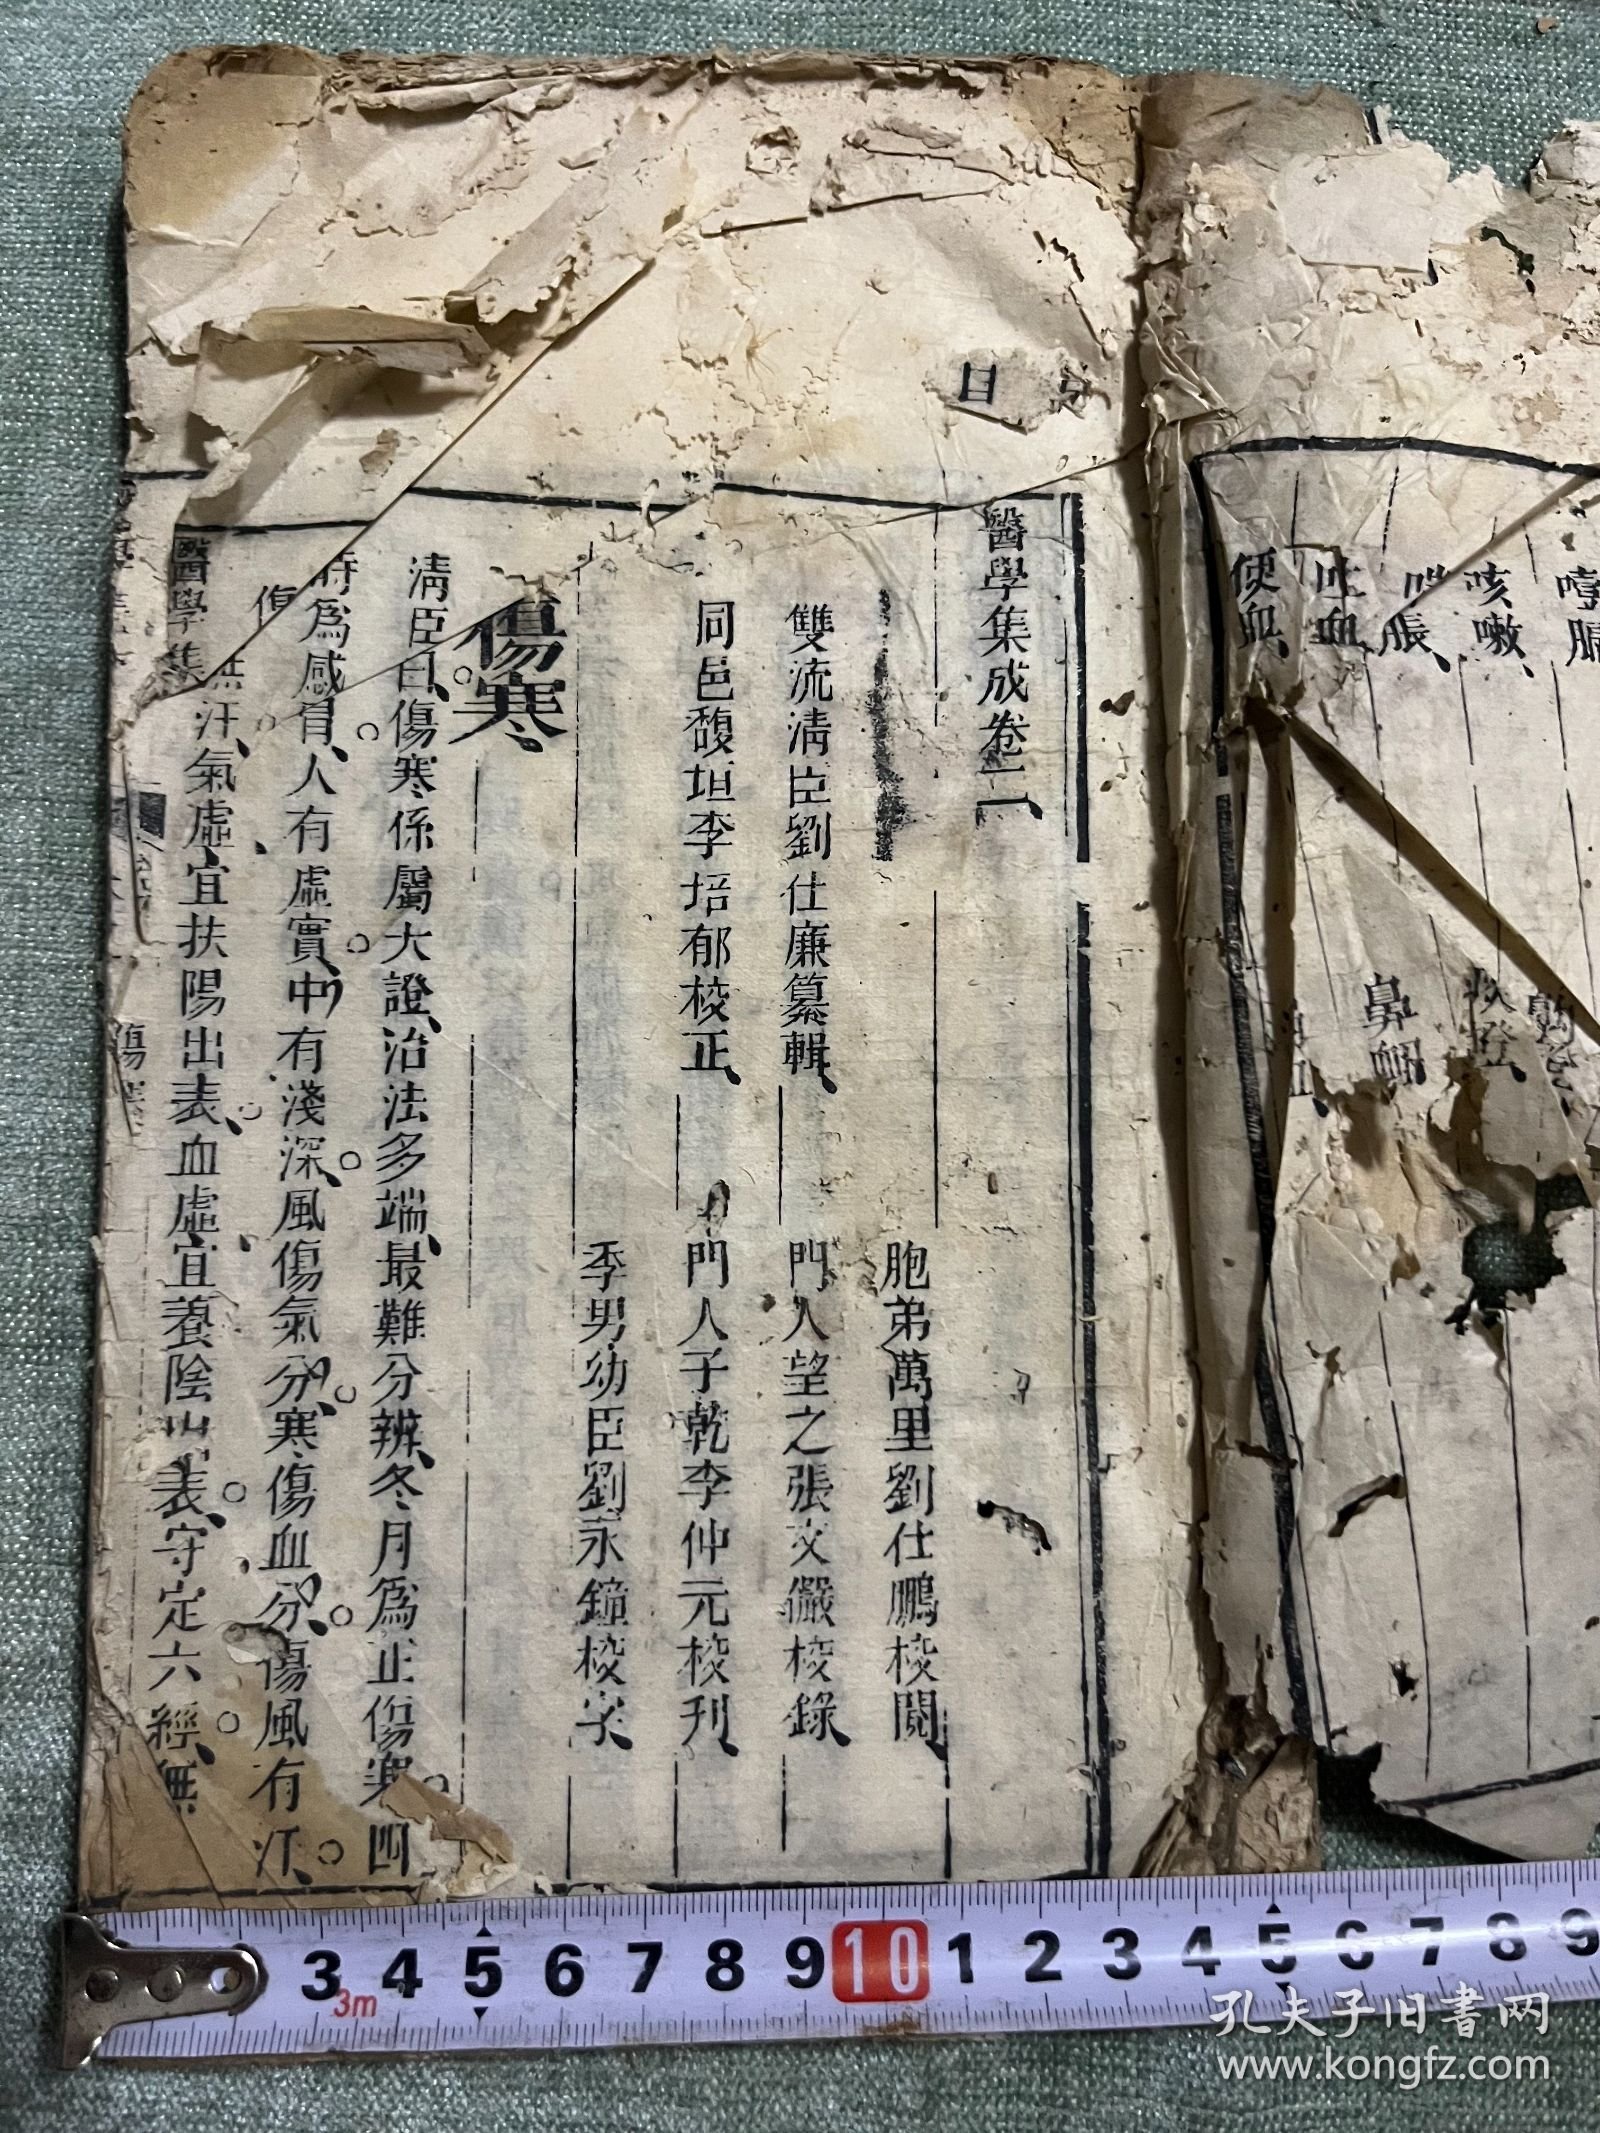 嘈
咳嗽、
脹、
吐血、
便血、
鼻衄
目
醫學集成卷二、
胞弟萬里劉仕鵬校閱、
雙流清臣劉仕廉纂輯、
門人望之張文儼校錄、
同邑馥垣李培郁校正、
門人子乾李仲元校刊、
季男幼臣劉永鐘校字、
傷寒、
清臣曰、傷寒係屬大證、治法多端、最難分辨、冬月爲正傷寒。四
時爲感冒、人有虛實、中有淺深、風傷氣分、寒傷血分、傷風有汗、
傷 無汗、氣虛、宜扶陽出表、血虛、宜養陰出表、守定六經、無
醫學集
傷寒
3 4 5 6 7 8 9 10 1 2 3 4 5 6 7 8 9
3m
孔夫子旧书网
www.kongfz.com